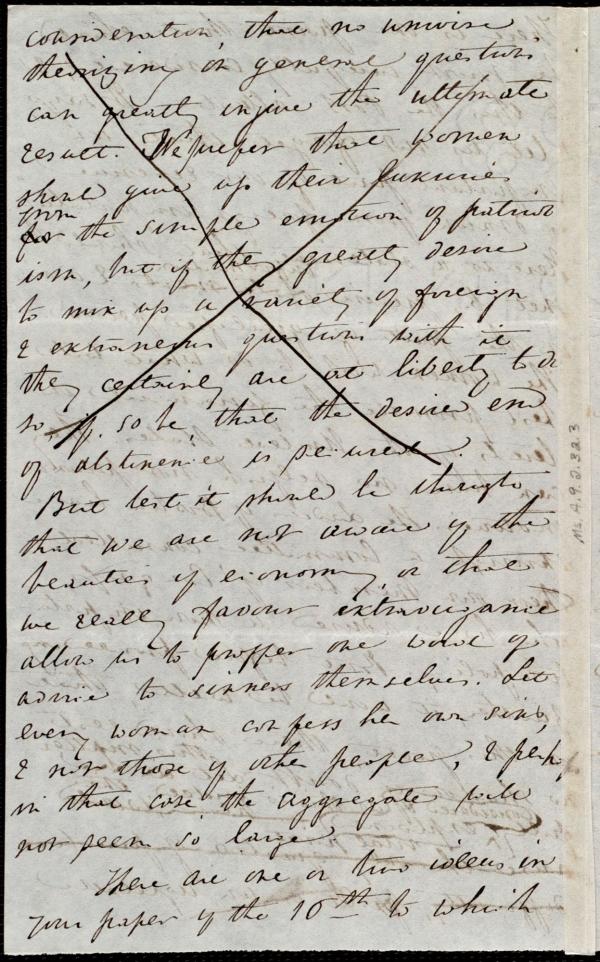 consideration that no unwise
theorizing on general questions
can greatly injure the ultimate
result. We prefer that women
should give up their luxuries
from
for the simple emotion of patriot
ism, but if they greatly desire
to mix up a variety of foreign
& extraneous questions with it
they certainly are at liberty to do
so, if so be, that the desired end
of abstinence is secured.
But lest it should be thought
that we are not aware of the
beauties of economy, or that
we really favour extravagance
allow us to proffer one word of
advice to sinners themselves. Let
every woman confess her own sins,
& not those of other people, & perh
in that case the aggregate will
not seem so large
There are one or two ideas in
your paper of the 10th to which
Ms. A.9.2.32.3